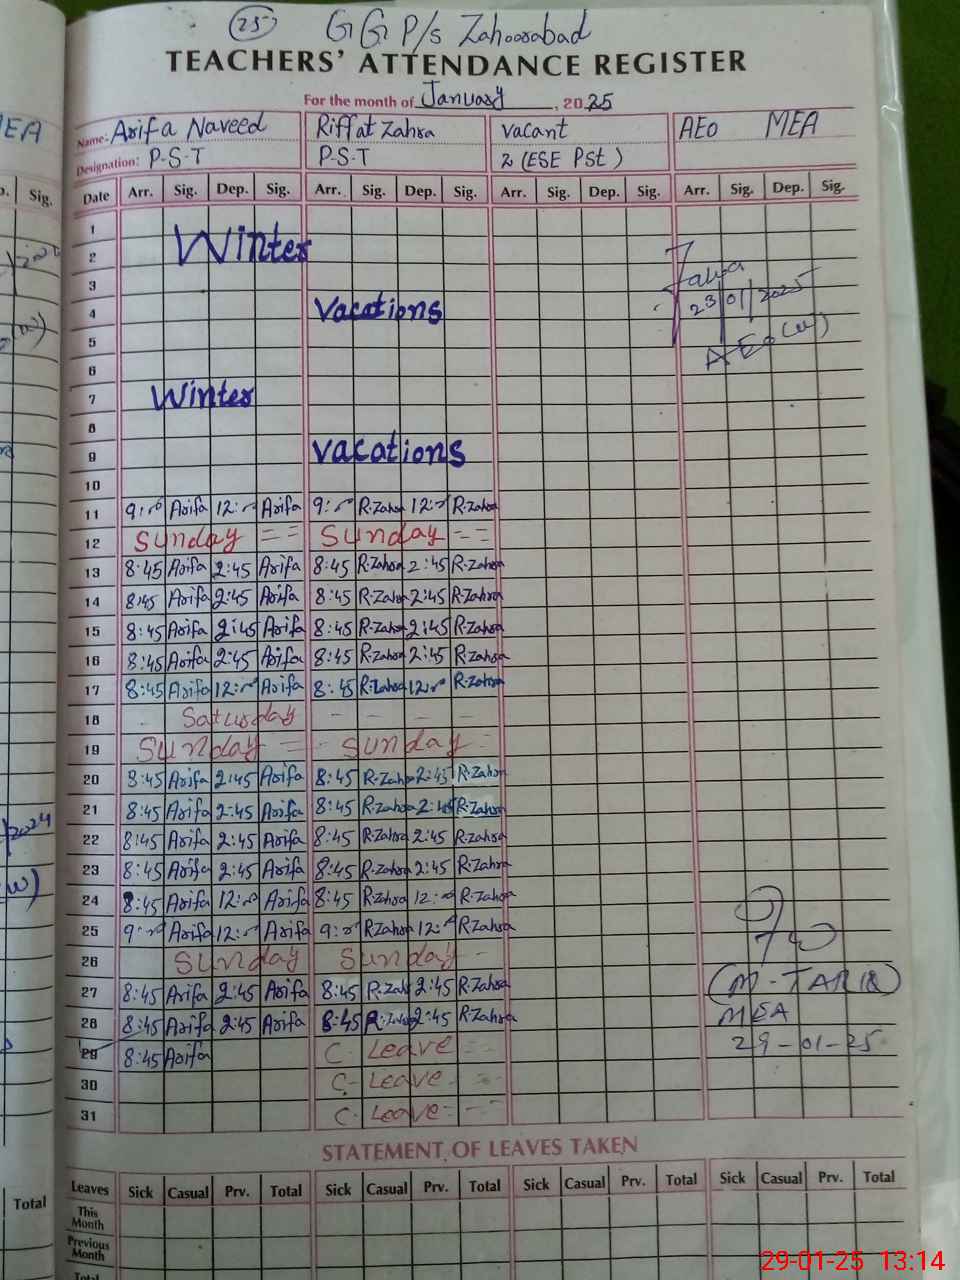 25 GG P/s Zahoorabad
TEACHERS' ATTENDANCE REGISTER
For the month of January, 2025
Name: Arifa Naveed Riffat Zahra vacant AEO MEA
Designation: P-S-T P-S-T 2 (ESE PST)
Date Arr. Sig. Dep. Sig. Arr. Sig. Dep. Sig. Arr. Sig. Dep. Sig. Arr. Sig. Dep. Sig.
1
2 Winter
3
4 Vacations 23/01/2025
5 AEO (W)
6
7 Winter
8
9 Vacations
10
11 9:00 Arifa 12:00 Arifa 9:00 R.Zahra 12:00 R.Zahra
12 Sunday == Sunday ==
13 8:45 Arifa 2:45 Arifa 8:45 R.Zahra 2:45 R.Zahra
14 8:45 Arifa 2:45 Arifa 8:45 R.Zahra 2:45 R.Zahra
15 8:45 Arifa 2:45 Arifa 8:45 R.Zahra 2:45 R.Zahra
16 8:45 Arifa 2:45 Arifa 8:45 R.Zahra 2:45 R.Zahra
17 8:45 Arifa 12:00 Arifa 8:45 R.Zahra 12:00 R.Zahra
18 - Saturday - - - -
19 Sunday == Sunday =
20 8:45 Arifa 2:45 Arifa 8:45 R.Zahra 2:45 R.Zahra
21 8:45 Arifa 2:45 Arifa 8:45 R.Zahra 2:45 R.Zahra
22 8:45 Arifa 2:45 Arifa 8:45 R.Zahra 2:45 R.Zahra
23 8:45 Arifa 2:45 Arifa 8:45 R.Zahra 2:45 R.Zahra
24 8:45 Arifa 12:00 Arifa 8:45 R.Zahra 12:00 R.Zahra
25 9:00 Arifa 12:00 Arifa 9:00 R.Zahra 12:00 R.Zahra
26 Sunday Sunday -
27 8:45 Arifa 2:45 Arifa 8:45 R.Zahra 2:45 R.Zahra (M-TARIQ)
28 8:45 Arifa 2:45 Arifa 8:45 R.Zahra 2:45 R.Zahra MEA
29 8:45 Arifa C. Leave == 29-01-25
30 C. Leave - =
31 C. Leave - --
STATEMENT OF LEAVES TAKEN
Leaves Sick Casual Prv. Total Sick Casual Prv. Total Sick Casual Prv. Total Sick Casual Prv. Total
This Month
Previous Month
Total
MEA
Sig.
2024
(W)
Total
29-01-25 13:14